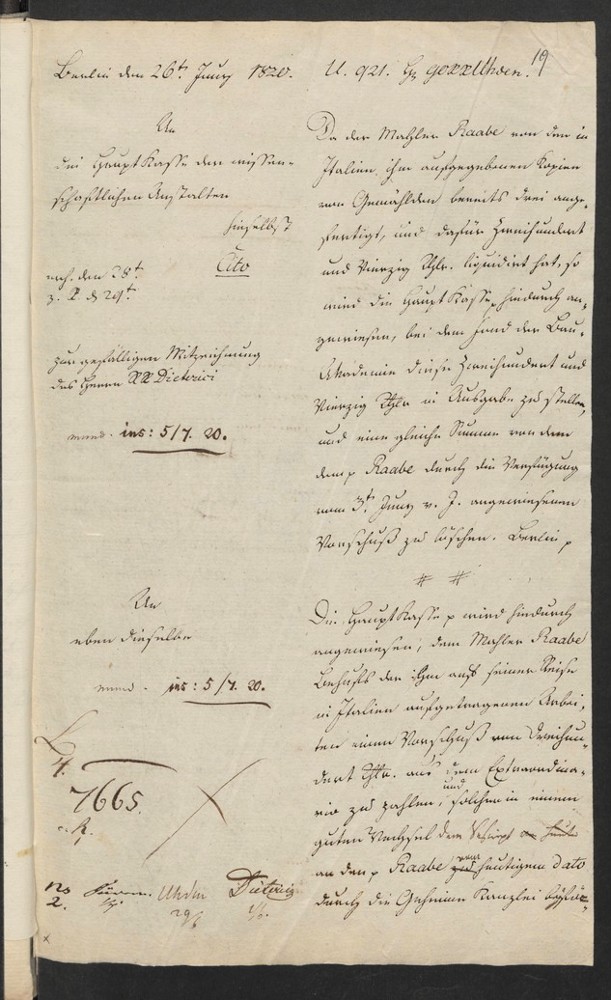 19
Berlin den 26t. Juny 1820.
U. 921. H. GORR Uhden.
An
die HauptKasse der wissen-
schaftlichen Anstalten
hieselbst
Cito
den 28t.
29t.
zur gefälligen Mitzeichnung
des Herrn RR Dieterici
mund. ins: 5/7. 20.
Da der Mahler Raabe von den in
Italien ihm aufgegebenen Kopien
von Gemählden bereits drei ange-
fertigt, und dafür Zweihundert
und Vierzig Thlr. liquidirt hat, so
wird die HauptKasse p hiedurch an-
gewiesen, bei dem Fond der Bau-
Akademie diese Zweihundert und
Vierzig Thlr in Ausgabe zu stellen,
und eine gleiche Summe von dem
dem p Raabe durch die Verfügung
vom 3t. Juny v. J. angewiesenen
Vorschuß zu löschen. Berlin p
# #
An
eben dieselbe
mund. ins: 5/7. 20.
Die HauptKasse p wird hiedurch
angewiesen, dem Mahler Raabe
Behufs der ihm auf seiner Reise
in Italien aufgetragenen Arbei-
ten einen Vorschuß von Dreihun-
dert Thlr. aus dem Extraordina-
rio zu zahlen, und solchen in einem
guten Wechsel
an den p Raabe heutigem dato
durch die Geheime Kanzlei
4.
7665.
no
2.
Uhden
29/6
Dieterici